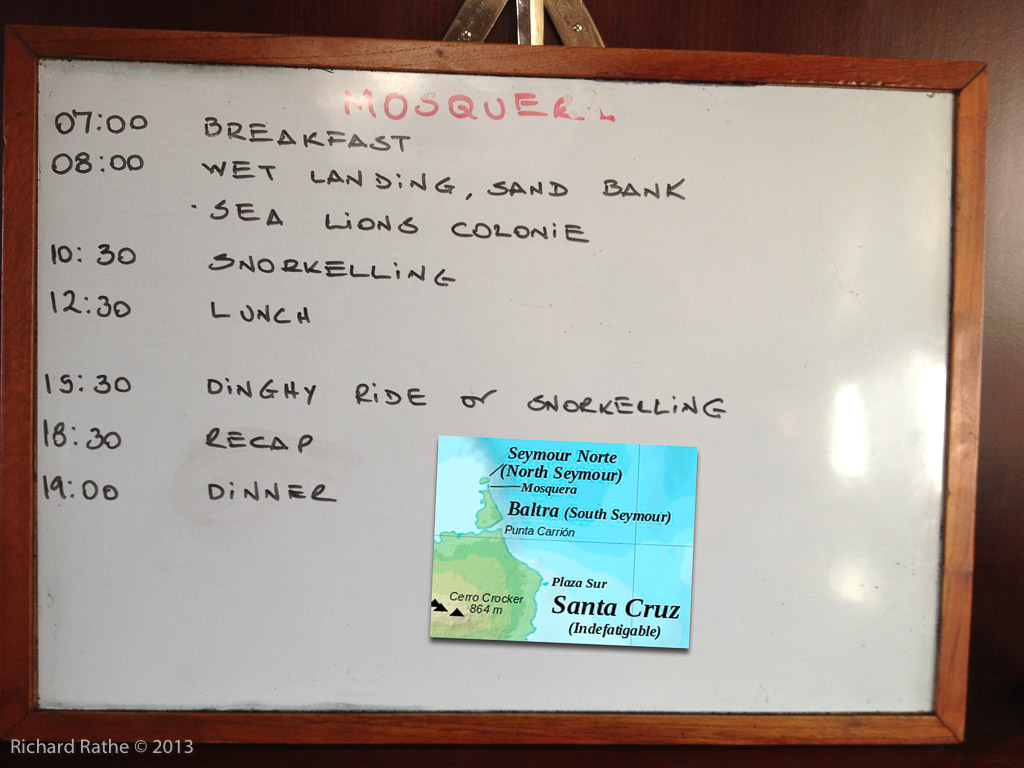 MOSQUERA
07:00 BREAKFAST
08:00 WET LANDING, SAND BANK
· SEA LIONS COLONIE
10:30 SNORKELLING
12:30 LUNCH
15:30 DINGHY RIDE or SNORKELLING
18:30 RECAP
19:00 DINNER
Seymour Norte
(North Seymour)
Mosquera
Baltra (South Seymour)
Punta Carrión
Plaza Sur
Cerro Crocker
864 m
Santa Cruz
(Indefatigable)
Richard Rathe © 2013